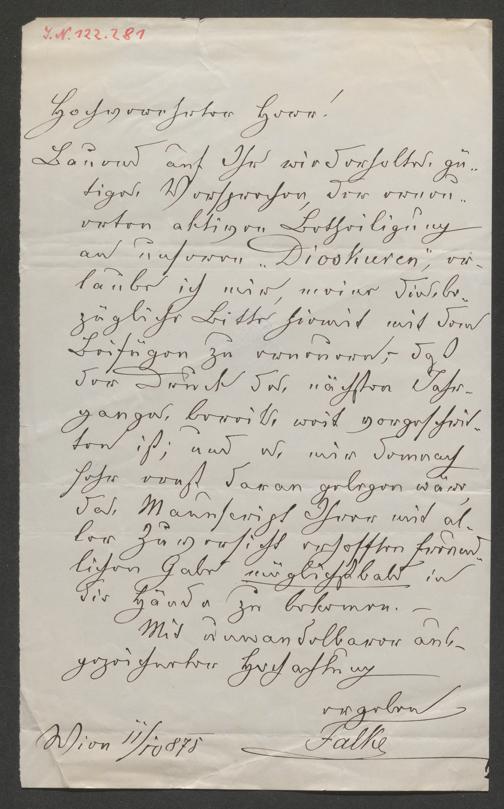 I.N. 122.281
Hochverehrter Herr!
Bauend auf Ihr wiederholtes gü-
tiges Versprechen, der erneu-
erten aktiven Betheiligung
an unseren „Dioskuren", er-
laube ich mir, meine diesbe-
zügliche Bitte hiemit mit dem
Beifügen zu erneuern, daß
der Druck des nächsten Jahr-
ganges bereits weit vorgeschrit-
ten ist; und es mir demnach
sehr ernst daran gelegen wäre,
das Manuscript Ihrer mit al-
ler Zuversicht erhofften freund-
lichen Gabe möglichst bald in
die Hände zu bekommen. –
Mit unwandelbarer aus-
gezeichneter Hochachtung
ergeben
Wien 11/10 875 Falke